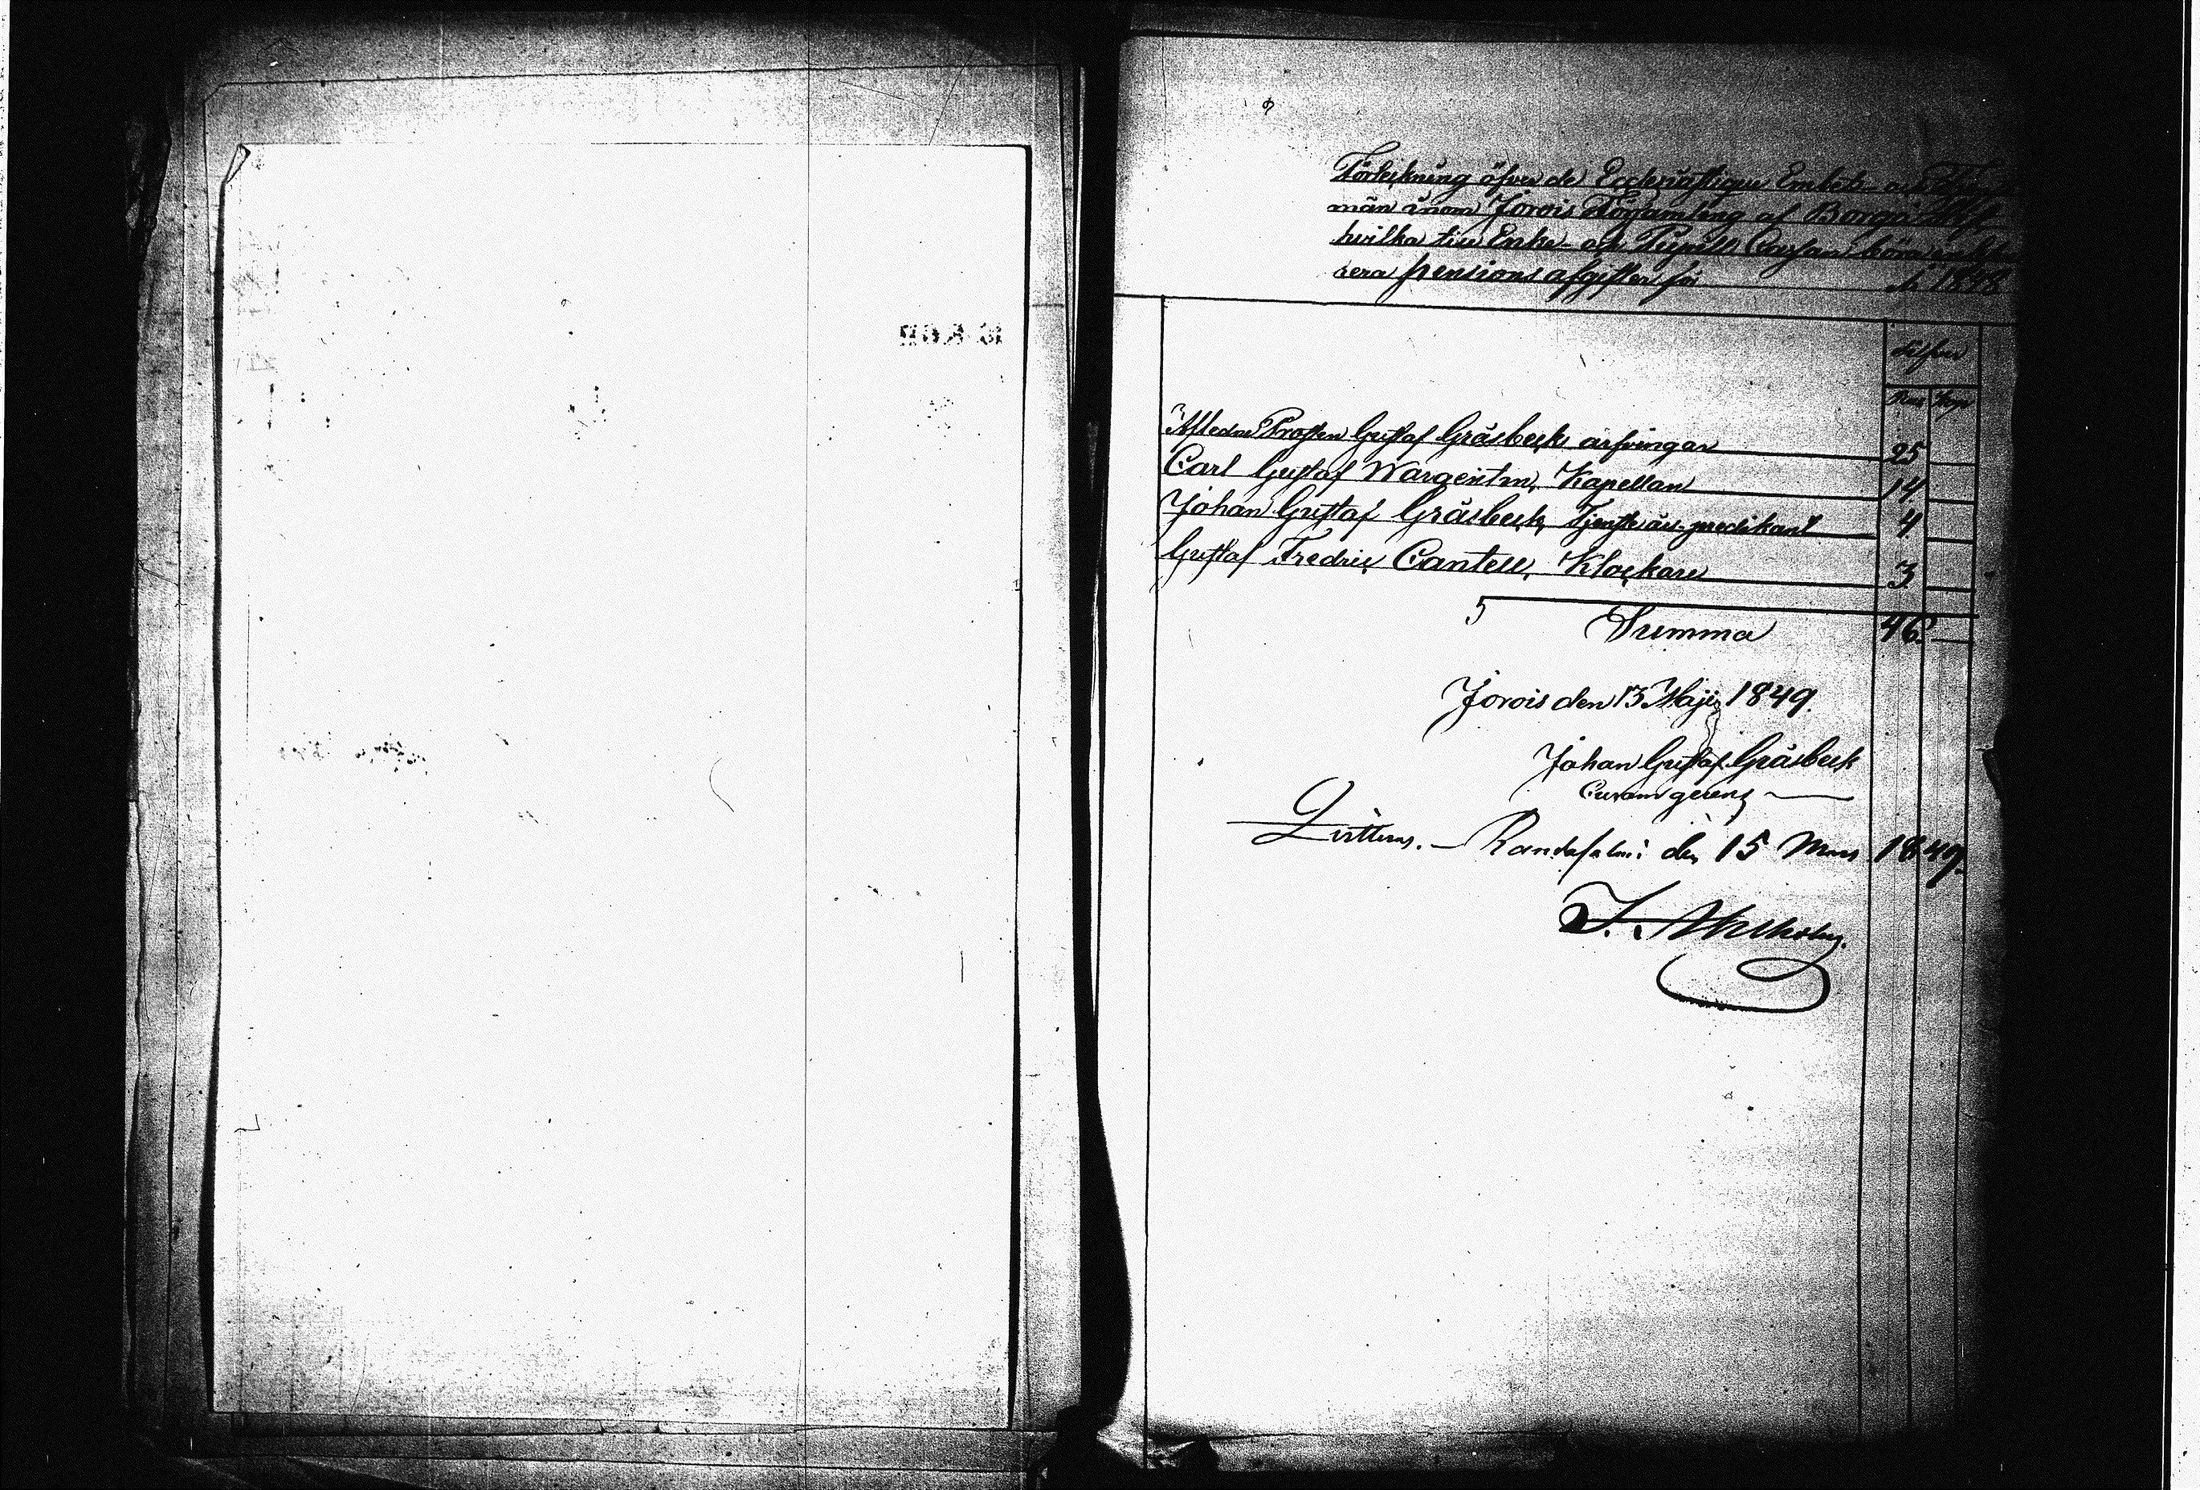 Förteckning öfver de Ecclesiastique Embets- och
män inom Jorois Församling af Borgå Stift,
hvilka till Enke- och Pupill Cassan böra
rera pensions afgifter för år 1848
Silfver
Rub Kop
Afledne Prosten Gustaf Gråsbeck arfvingar 25
Carl Gustaf Wargentin, Kapellan 14
Johan Gustaf Gråsbeck, Tjenste års-predikant 4
Gustaf Fredric Cantell, Klockare 3
Summa 46
Jorois den 13 Maji 1849.
Johan Gustaf Gråsbeck
Curam gerens
Qvitteras. Randasalmi den 15 Mars 1849.